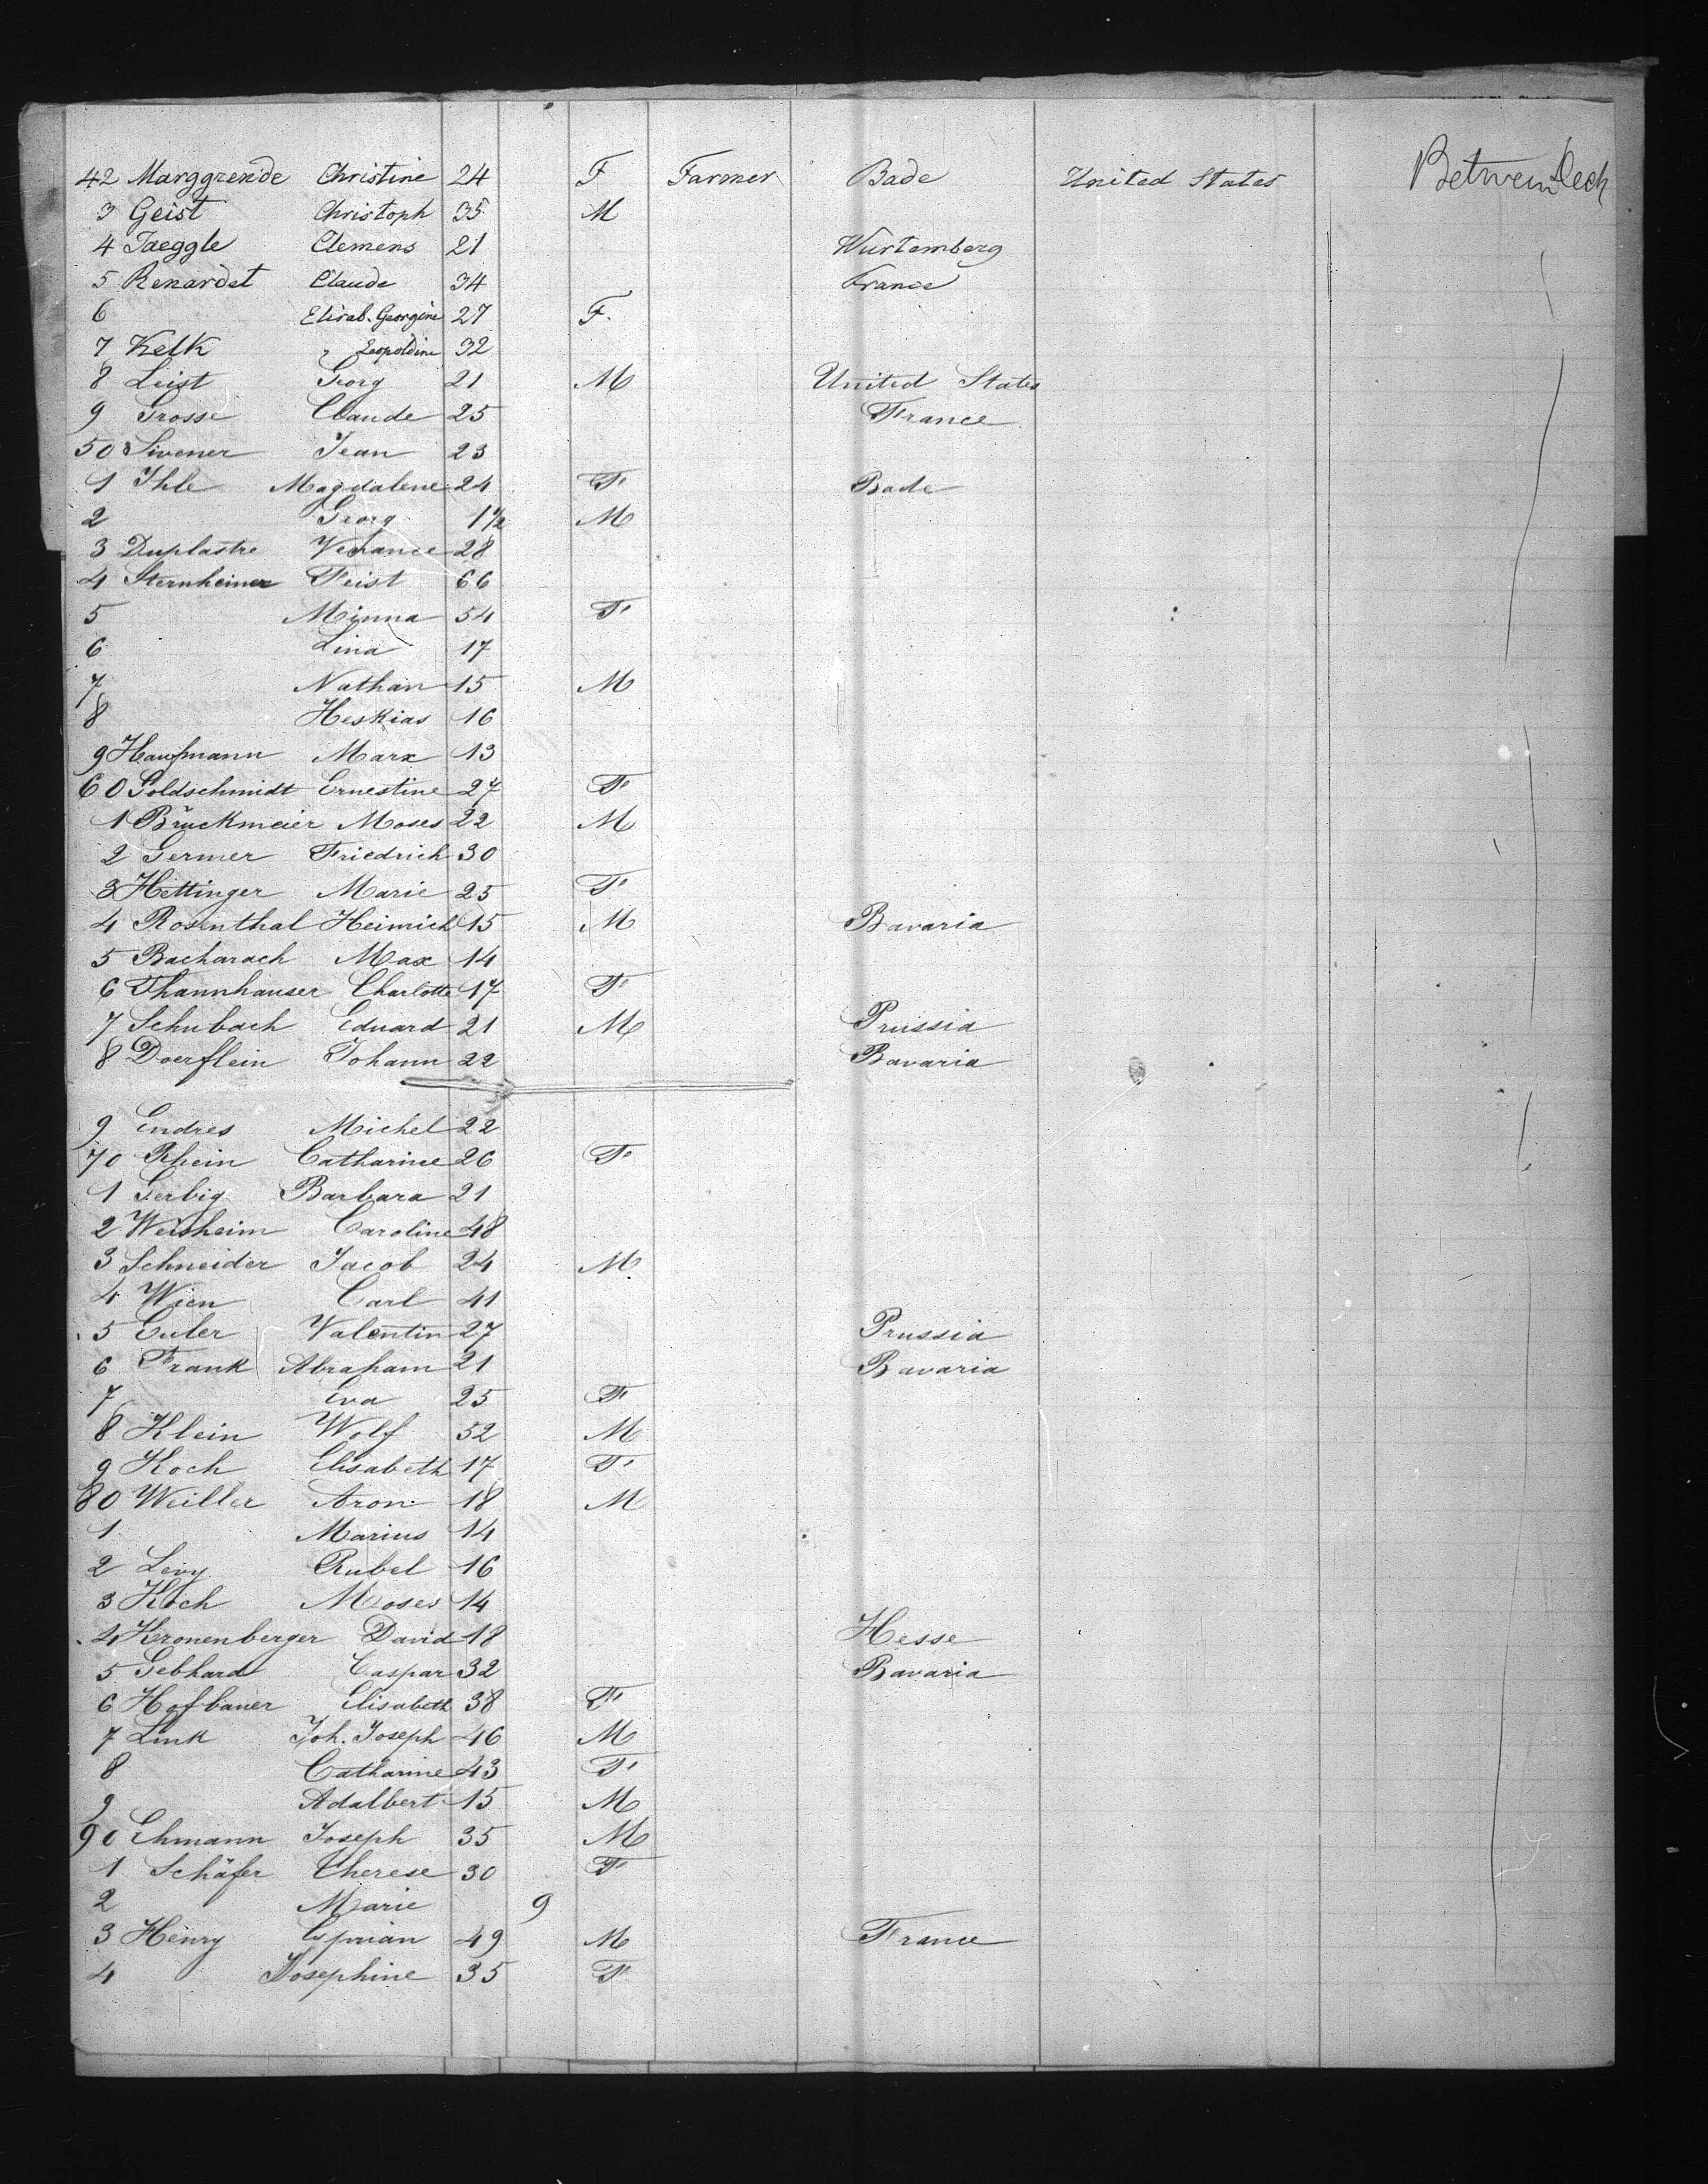 42 Marggrende Christine 24 F Farmer Bade United States Betwein Deck
3 Geist Christoph 35 M
4 Jaeggle Clemens 21 Wurtemberg
5 Renardet Claude 34 France
6 Elisab. Georgine 27 F.
7 Kelk " Leopoldine 32
8 Leist Georg 21 M United States
9 Grosse Claude 25 France
50 Sivener Jean 23
1 Ihle Magdalene 24 F Bade
2 Georg 1 1/2 M
3 Duplastre Venance 28
4 Sternheimer Feist 66
5 Minna 54 F
6 Lina 17
7 Nathan 15 M
8 Heskias 16
9 Haufmann Marx 13
60 Goldschmidt Ernestine 27 F
1 Brückmeier Moses 22 M
2 Germer Friedrich 30
3 Hettinger Marie 25 F
4 Rosenthal Heinrich 15 M Bavaria
5 Bacharach Max 14
6 Thannhauser Charlotte 17 F
7 Schubach Eduard 21 M Prussia
8 Doerflein Johann 22 Bavaria
9 Endres Michel 22
70 Rhein Catharine 26 F
1 Gerbig Barbara 21
2 Weisheim Caroline 48
3 Schneider Jacob 24 M
4 Wien Carl 41
5 Euler Valentin 27 Prussia
6 Frank Abraham 21 Bavaria
7 Eva 25 F
8 Klein Wolf 52 M
9 Koch Elisabeth 17 F
80 Weiller Aron 18 M
1 Marius 14
2 Levy Rubel 16
3 Koch Moses 14
4 Kronenberger David 18 Hesse
5 Gebhard Caspar 32 Bavaria
6 Hofbauer Elisabeth 38 F
7 Link Joh. Joseph 46 M
8 Catharine 43 F
9 Adalbert 15 M
90 Ehmann Joseph 35 M
1 Schäfer Therese 30 F
2 Marie 9
3 Henry Cyprian 49 M France
4 Josephine 35 F